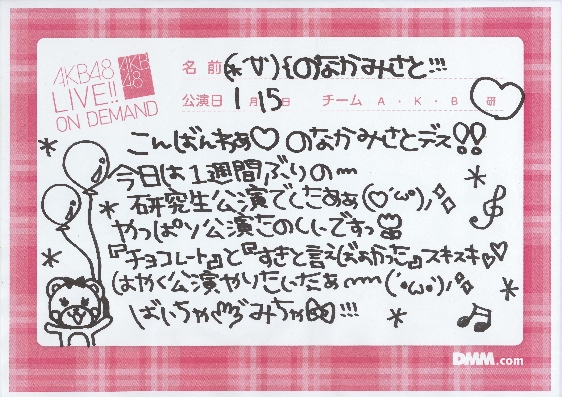 AKB48
LIVE!!
ON DEMAND
AKB
48
名前 (*'∀'){のなかみさと!!!
公演日 1月15日 チーム A・K・B 研
こんばんわぁ♡ のなかみさとデス!!
今日は1週間ぶりのー
研究生公演でしたぁぁ(♡'ω'o)ﾉ
やっぱり公演たのしーですっ
『チョコレート』と『すきと言えばよかった』スキスキ♡
はやく公演やりたいたぁーー(´・ω・)ﾉ
ばいちゃ みちゃ !!!
DMM.com